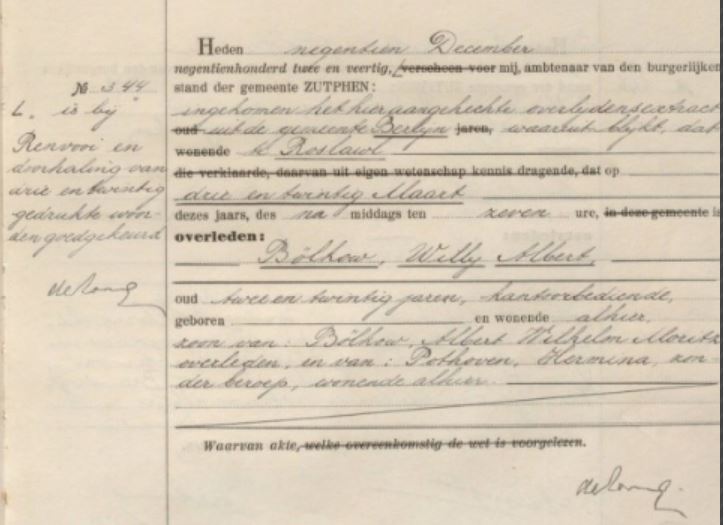 Heden negentien December
negentienhonderd twee en veertig, verscheen voor mij, ambtenaar van den burgerlijken
stand der gemeente ZUTPHEN:
ingekomen het hieraangehechte overlijdensextract
oud uit de gemeente Berlyn jaren, waaruit blykt, dat
wonende te Roslawl
die verklaarde, daarvan uit eigen wetenschap kennis dragende, dat op
drie en twintig Maart
dezes jaars, des na middags ten zeven ure, in deze gemeente is
overleden:
Bölkow, Willy Albert,
oud twee en twintig jaren, kantoorbediende,
geboren en wonende alhier,
zoon van: Bölkow, Albert Wilhelm Moritz
overleden, en van: Pothoven, Hermina, zon-
der beroep, wonende alhier.
Waarvan akte, welke overeenkomstig de wet is voorgelezen.
№ 344
L „is by"
Renvooi en
doorhaling van
drie en twintig
gedrukte woor-
den goedgekeurd